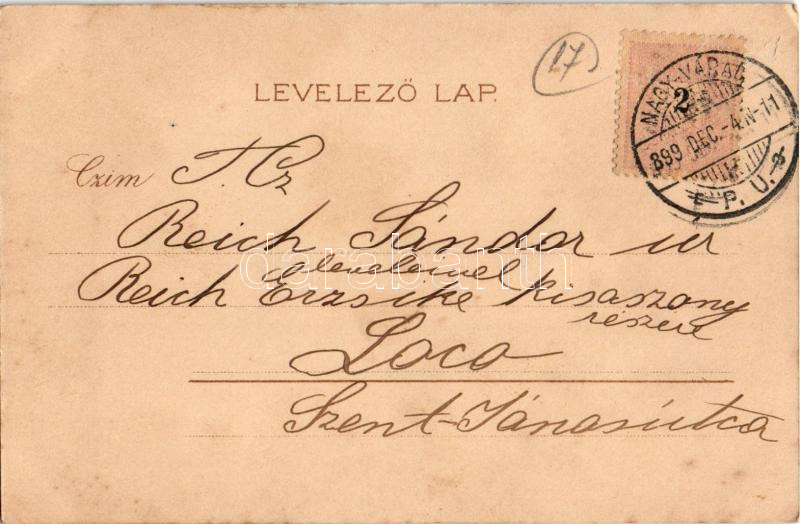 17
LEVELEZŐ LAP.
2
NAGY-VÁRAD
899 DEC. -4. N-11
P. U.
Czim T. Cz
Reich Sándor úr
Reich Erzsike kisaszony
részére
Loco
Szent-Jánosútca
darabanth